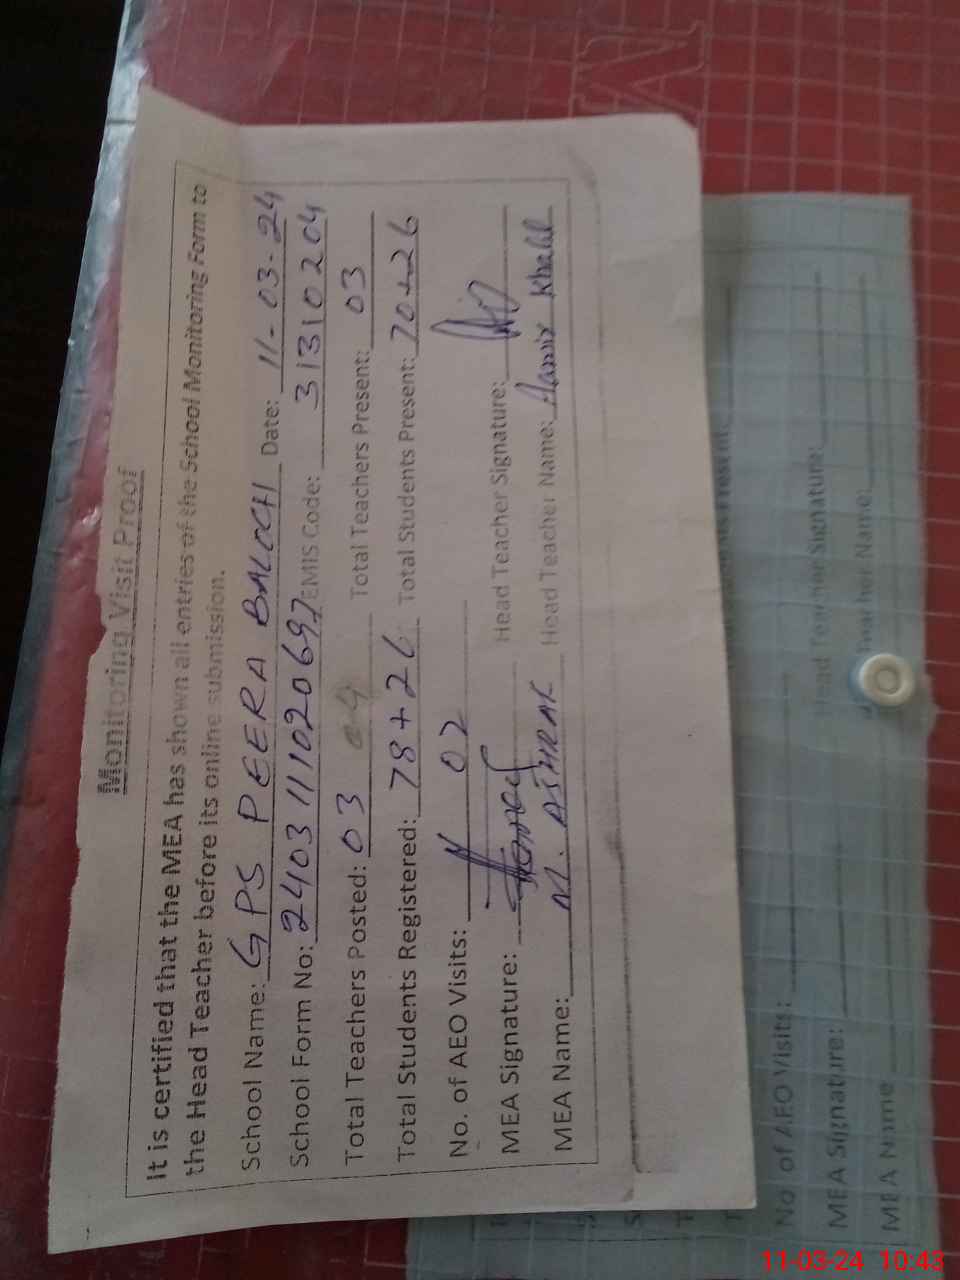 Monitoring Visit Proof
It is certified that the MEA has shown all entries of the School Monitoring Form to
the Head Teacher before its online submission.
School Name: GPS PEERA BALOCH Date: 11-03-24
School Form No: 2403111020697 EMIS Code: 31310204
Total Teachers Posted: 03 Total Teachers Present: 03
Total Students Registered: 78+26 Total Students Present: 70+26
No. of AEO Visits: 02
MEA Signature: Head Teacher Signature:
MEA Name: M. ASHRAF Head Teacher Name: Aamir Khalil
No of AEO Visits:
MEA Signature: Head Teacher Signature:
MEA Name Teacher Name:
11-03-24 10:43